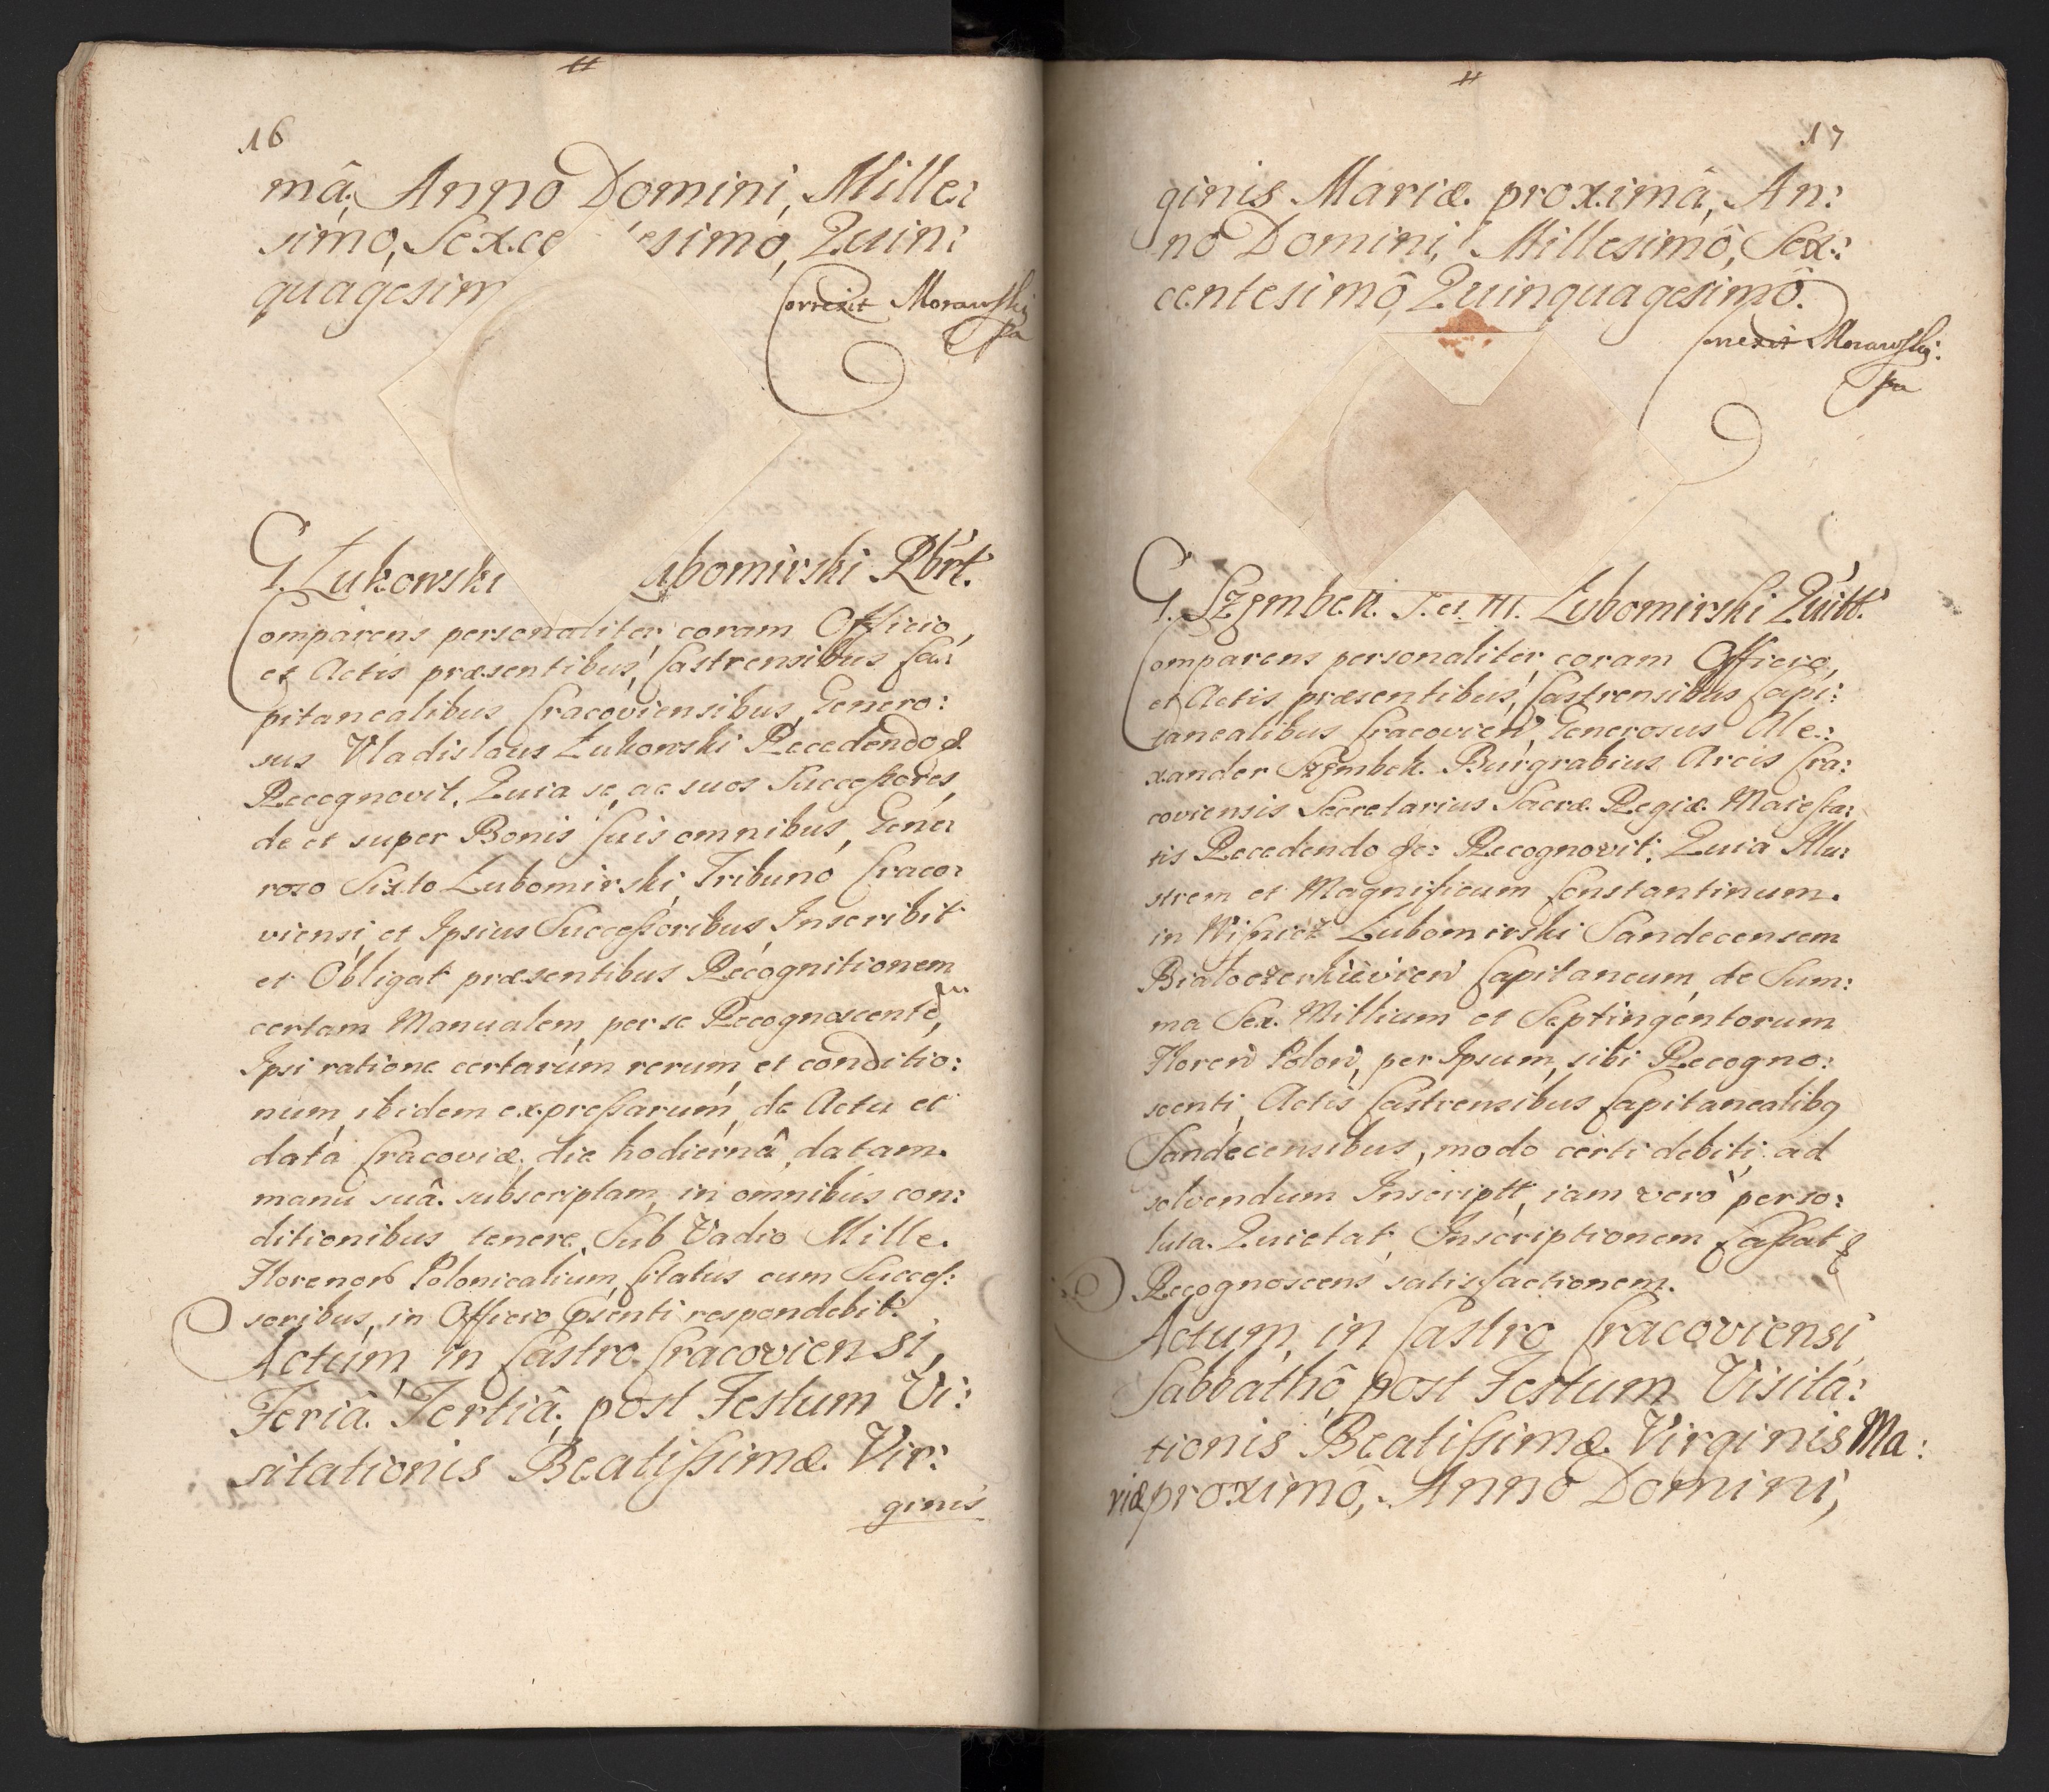 16
mâ, Anno Domini, Mille:
simo, Sexce esimo, Quin:
quagesim
Correxit Morawski
G. Łukowski ubomirski Rbrt.
Comparens personaliter coram Officio,
et Actis præsentibus, Castrensibus Ca:
pitanealibus Cracoviensibus, Genero:
sus Vladislaus Łukowski Recedendo &
Recognovit, Quia se, ac suos Successores,
de et super Bonis suis omnibus, Gene:
roso Sixto Lubomirski, Tribuno Craco:
viensi, et Ipsius Successoribus, Inscribit
et Obligat præsentibus Recognitionem
certam Manualem, per se Recognoscentem,
Ipsi ratione certarum rerum, et conditio:
num, ibidem expressarum, de Actu et
data Cracoviæ, die hodiernâ, datam.
manu suâ subscriptam, in omnibus con:
ditionibus tenere, Sub Vadio Mille.
Florenorũ Polonicalium, citatus cum Succes:
soribus, in Officio p̃senti respondebit.
Actum, in Castro Cracoviensi,
Feriâ Tertiâ, post Festum Vi:
sitationis Beatissimæ Vir:
ginis
17
ginis Mariæ proximâ, An:
no Domini, Millesimô, Sex:
centesimô, Quinquagesimô.
Correxit Morawski:
G. Szembek. I. et M. Lubomirski Quitt.
Comparens personaliter, coram Officio,
et Actis, præsentibus, Castrensibus Capi:
tanealibus Cracovien̄, Generosus Ale:
xander Szembek. Burgrabius Arcis Cra:
coviensis Secretarius Sacræ Regiæ Maiesta:
tis Recedendo &c: Recognovit, Quia Illu:
strem et Magnificum Constantinum.
in Wisnicz Lubomirski Sandecensem
Białocerkievien̄ Capitaneum, de Sum:
ma Sex. Millium et Septingentorum
Floren̄ Polon̄, per Ipsum, sibi Recogno:
scenti, Actis Castrensibus Capitanealibq
Sandecensibus, modo certi debiti ad
solvendum Inscriptt, iam verò perso:
luta. Quietat, Inscriptionem Cassat &
Recognoscens satisfactionem.
Actum, in Castro Cracoviensi
Sabbathô, post Festum Visita:
tionis Beatissimæ Virginis Ma:
riæ proximô, Anno Domini,